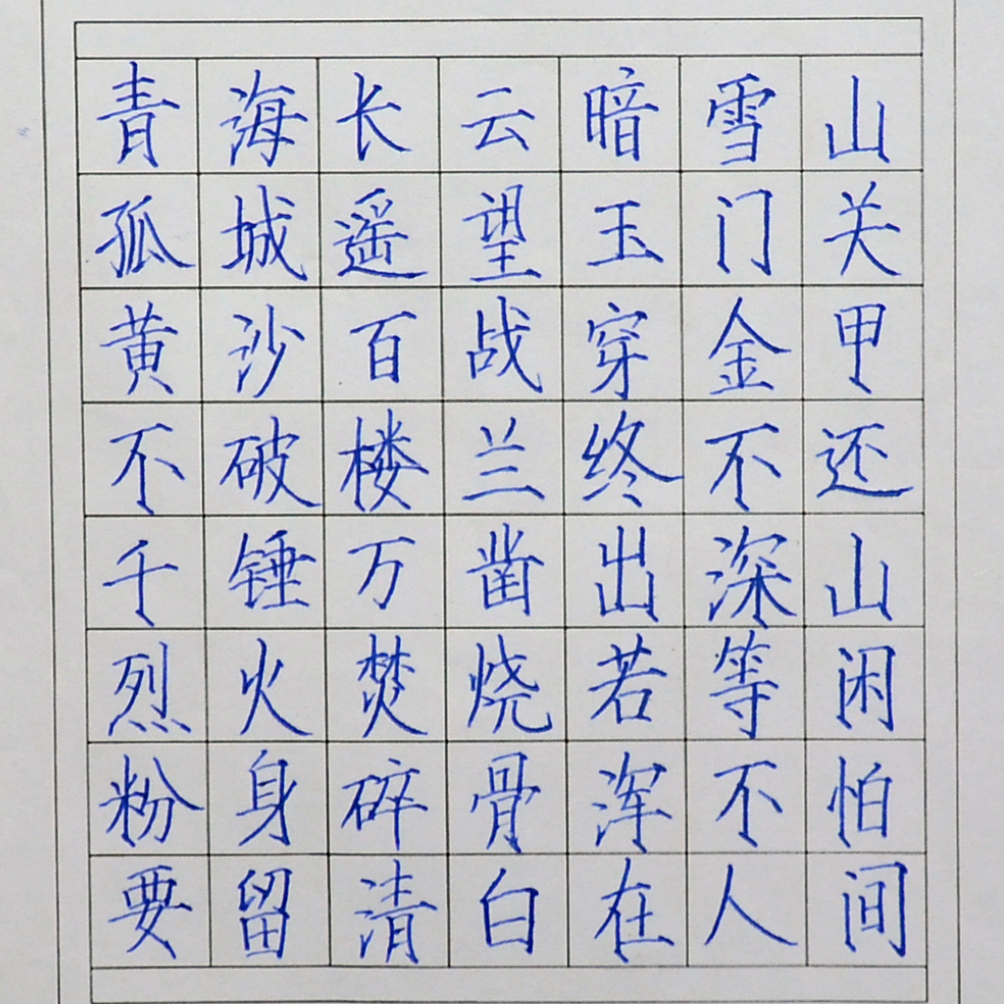 青海长云暗雪山
孤城遥望玉门关
黄沙百战穿金甲
不破楼兰终不还
千锤万凿出深山
烈火焚烧若等闲
粉身碎骨浑不怕
要留清白在人间